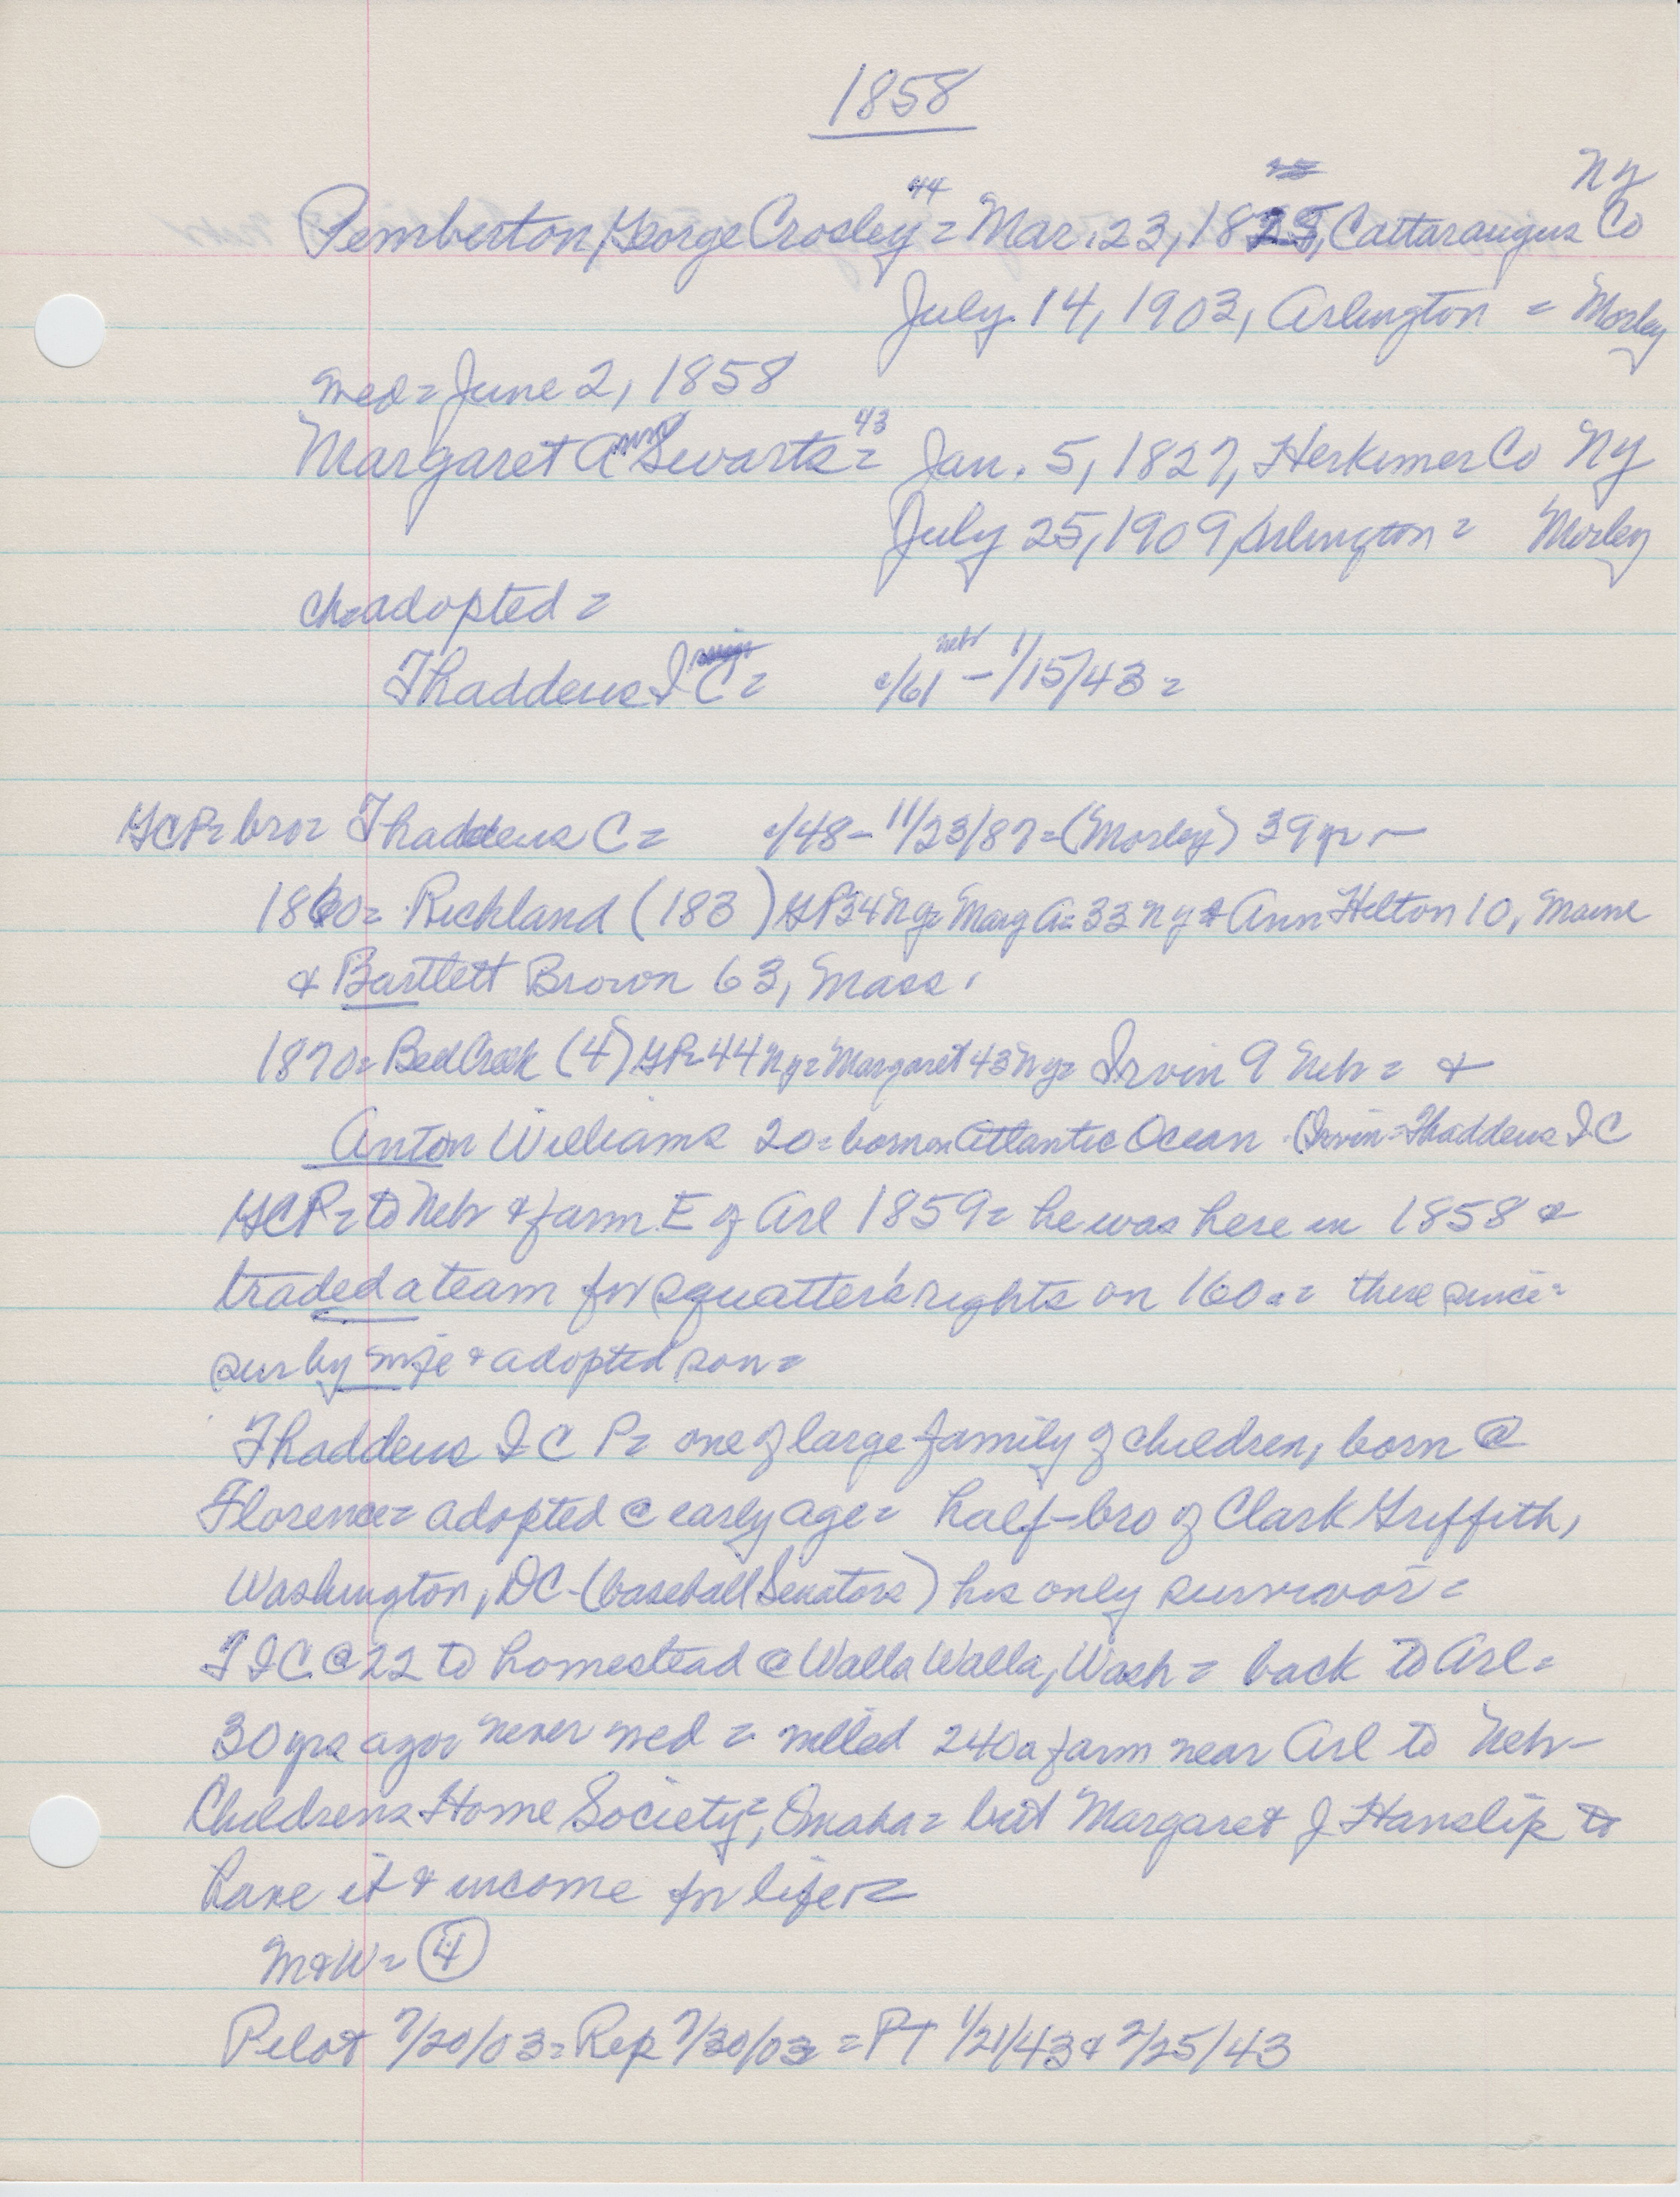 1858
Ny
Pemberton, George Crosley 44 = Mar. 23, 1825, Cattaraugus Co
July 14, 1903, Arlington = Morley
med = June 2, 1858
Margaret Ann Swarts 43 = Jan. 5, 1827, Herkimer Co Ny
July 25, 1909, Arlington = Morley
ch = adopted =
Thaddeus I C = c/61 Nebr - 1/15/43 =
GCP = bro = Thaddeus C = c/48 - 11/23/87 = (Morley) 39 yr -
1860 = Richland (183) GP 34 Ny = Marg A = 33 Ny & Ann Helton 10, Maine
& Bartlett Brown 63, Mass.
1870 = Bell Creek (4) GP = 44 Ny = Margaret 43 Ny = Irvin 9 Neb = &
Anton Williams 20 = born on Atlantic Ocean (Irvin = Thaddeus I C
GCP = to Neb & farm E of Arl 1859 = he was here in 1858 &
traded a team for squatter's rights on 160 a = there since =
sur by wife & adopted son =
Thaddeus I C P = one of large family of children, born @
Florence = adopted @ early age = half-bro of Clark Griffith,
Washington, DC - (baseball Senators) his only survivor =
T I C @ 22 to homestead @ Walla Walla, Wash = back to Arl =
30 yrs ago = never med = willed 240 a farm near Arl to Neb -
Childrens Home Society =, Omaha = but Margaret J Hanslip to
have it & income for life =
M&W = 4
Pilot 7/20/03 = Rep 7/30/03 = PT 1/21/43 & 2/25/43